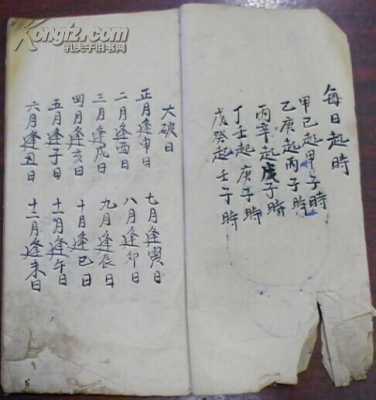 每日起時
甲己起甲子時
乙庚起丙子時
丙辛起子時
丁壬起庚子時
戊癸起壬子時
大破日
正月逢申日
七月逢寅日
二月逢酉日
八月逢卯日
三月逢戌日
九月逢辰日
四月逢亥日
十月逢巳日
五月逢子日
十一月逢午日
六月逢丑日
十二月逢未日
Kongfz.com
孔夫子旧书网